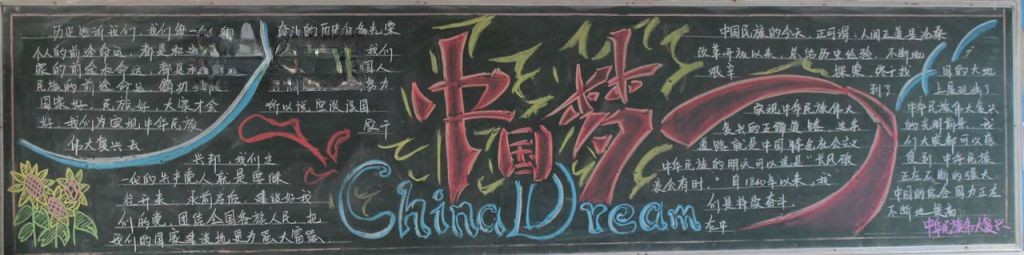 历史告诉我们，我们每一
个人的前途命运，都是和
家的前途和命运，都是
民族的前途命运
国家好，民族好，大家才会
好，我们为实现中华民族
伟大复兴去
奋斗的历史
我们
国人
努力
所以说，空谈误国
兴邦，我们这
一代的共产党人就是要继
往开来
们的党，团结全国各族人民，把
我们的国家建设地更为强大富强
中国梦
China Dream
中国民族的今天，正可谓：人间正道是沧桑
改革开放以来，总结历史经验，不断地
艰辛 探索 终于找
到了
实现中华民族伟大
复兴的正确道路，这条
道路就是中国特色社会主义
中华民族的明天可以说是“长风破
浪会有时，”自1840年以来，我
们是持续奋斗，
在中
国的大地
上展现出了
中华民族伟大复兴
的光明前景，我
们大家都可以感
觉到 中华民族
正在不断的强大
中国的综合国力正在
不断地提高
中华民族伟大复兴